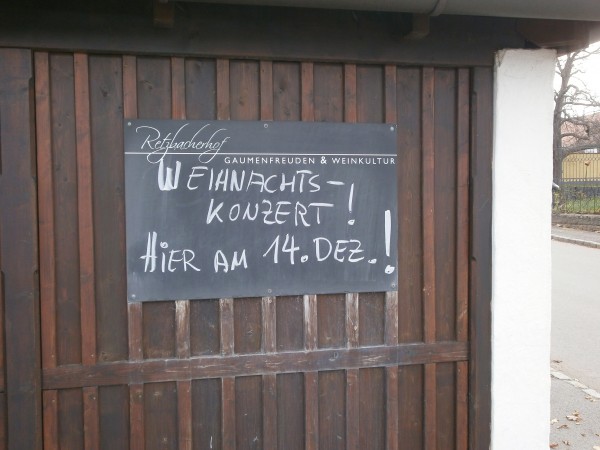 Retzbacherhof
GAUMENFREUDEN & WEINKULTUR
WEIHNACHTS-
KONZERT!
HIER AM 14. DEZ.!